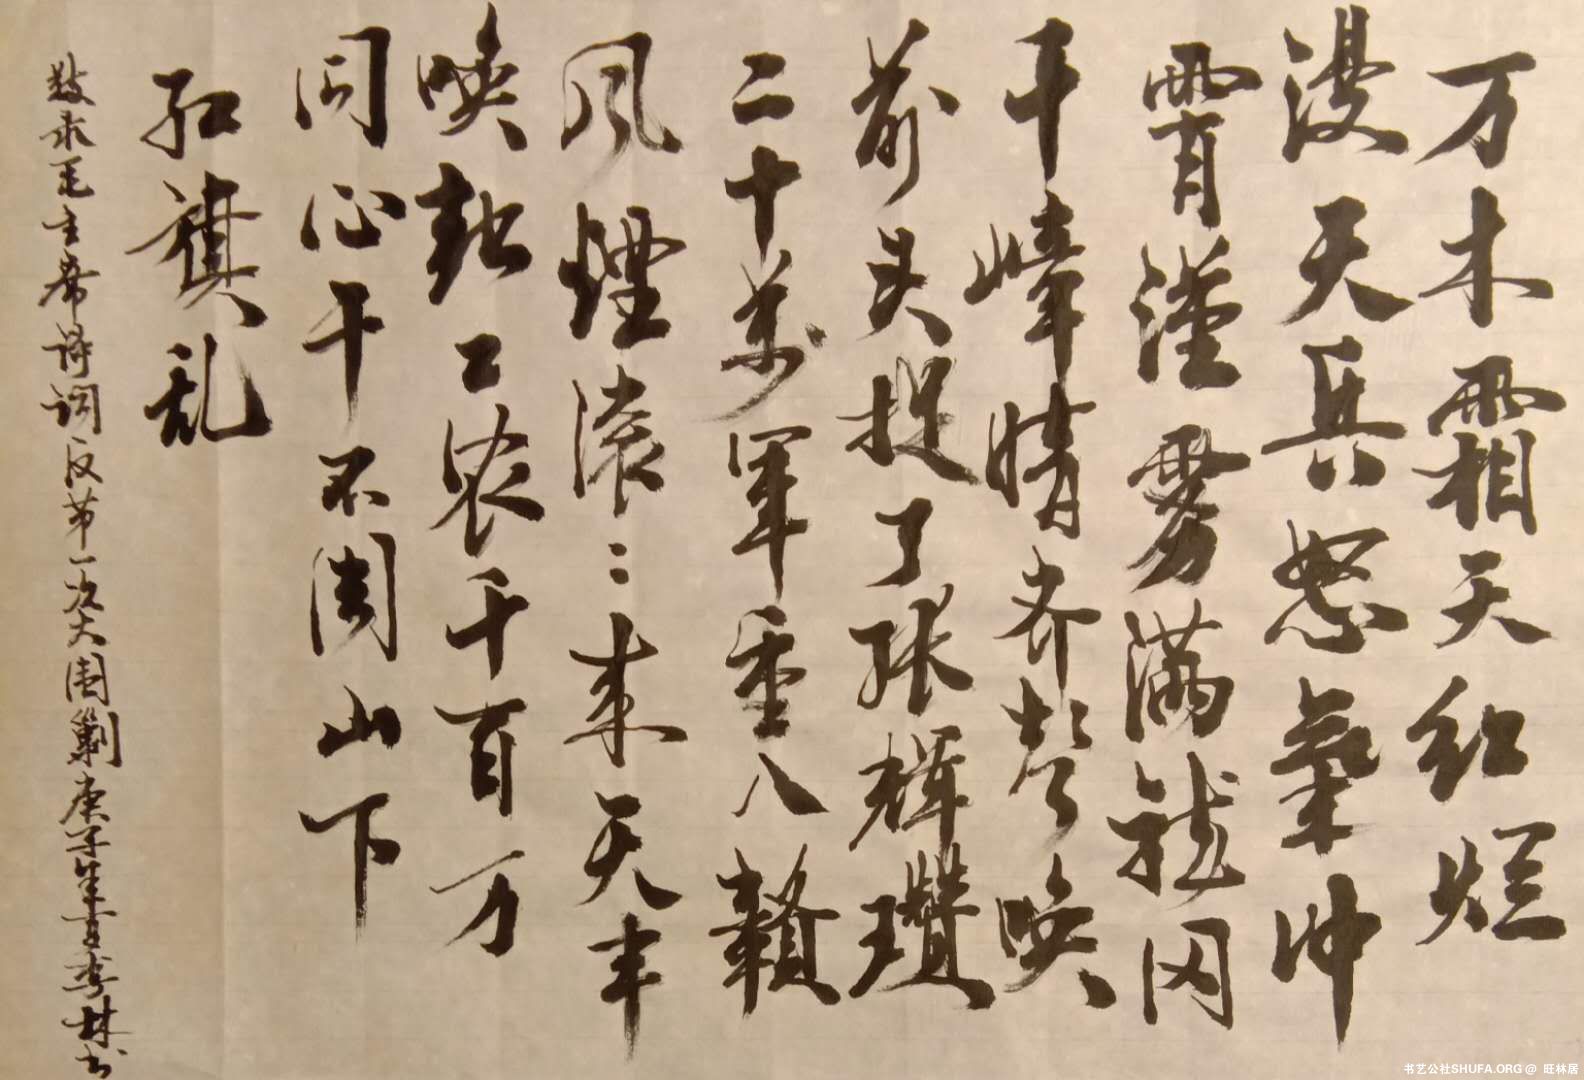 万木霜天红烂
漫天兵怒氣冲
霄漢雾满龍冈
千嶂暗齐声唤
前头捉了张輝瓚
二十萬軍重入贛
风煙滚々来天半
唤起工农千百万
同心干不周山下
红旗乱
毛主席诗词反第一次大围剿庚子年書李林书
书艺公社SHUFA.ORG @ 旺林居